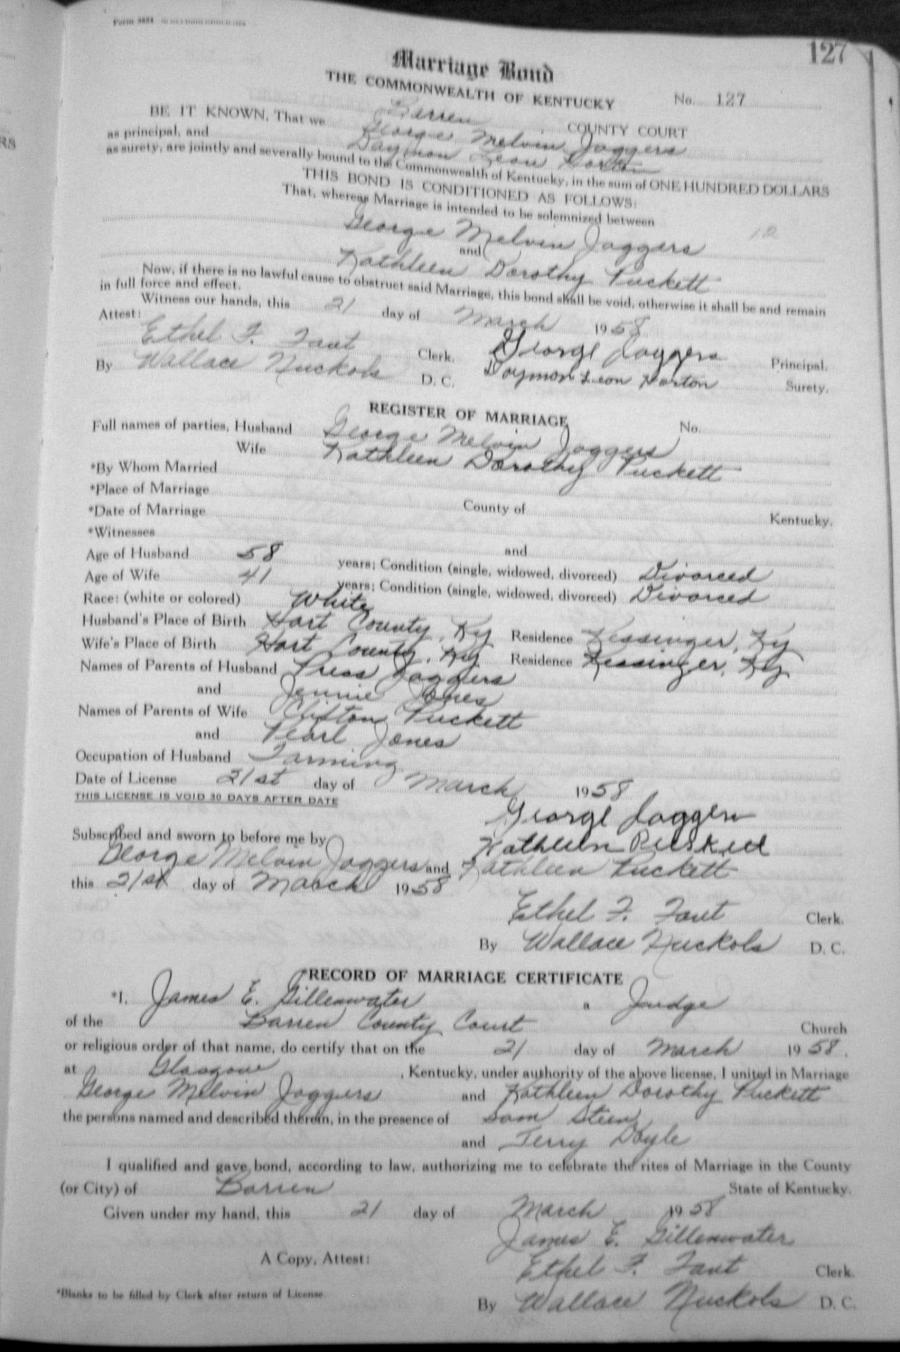 127
Marriage Bond
THE COMMONWEALTH OF KENTUCKY No. 127
Barren COUNTY COURT
BE IT KNOWN, That we George Melvin Jaggers
as principal, and Daymon Leon Horton
as surety, are jointly and severally bound to the Commonwealth of Kentucky, in the sum of ONE HUNDRED DOLLARS
THIS BOND IS CONDITIONED AS FOLLOWS:
That, whereas Marriage is intended to be solemnized between
George Melvin Jaggers
and
Kathleen Dorothy Puckett
Now, if there is no lawful cause to obstruct said Marriage, this bond shall be void, otherwise it shall be and remain
in full force and effect.
Witness our hands, this 21 day of March 1958
Attest:
Ethel F. Fant Clerk. George Jaggers Principal.
By Wallace Nuckols D. C. Daymon Leon Horton Surety.
REGISTER OF MARRIAGE
Full names of parties, Husband George Melvin Jaggers No.
Wife Kathleen Dorothy Puckett
*By Whom Married
*Place of Marriage
*Date of Marriage County of Kentucky.
*Witnesses and
Age of Husband 58 years; Condition (single, widowed, divorced) Divorced
Age of Wife 41 years; Condition (single, widowed, divorced) Divorced
Race: (white or colored) White
Husband's Place of Birth Hart County, Ky Residence Kessinger, Ky
Wife's Place of Birth Hart County, Ky Residence Kessinger, Ky
Names of Parents of Husband Press Jaggers
and Jennie Jones
Names of Parents of Wife Clifton Puckett
and Pearl Jones
Occupation of Husband Farming
Date of License 21st day of March 1958
THIS LICENSE IS VOID 30 DAYS AFTER DATE
George Jaggers
Subscribed and sworn to before me by Kathleen
George Melvin Jaggers and Kathleen Puckett
this 21st day of March 1958
Ethel F. Fant Clerk.
By Wallace Nuckols D. C.
*RECORD OF MARRIAGE CERTIFICATE
*I, James E. Gillenwater a Judge
of the Barren County Court Church
or religious order of that name, do certify that on the 21 day of March 1958,
at Glasgow, Kentucky, under authority of the above license, I united in Marriage
George Melvin Jaggers and Kathleen Dorothy Puckett
the persons named and described therein, in the presence of Sam Steen
and Terry Doyle
I qualified and gave bond, according to law, authorizing me to celebrate the rites of Marriage in the County
(or City) of Barren State of Kentucky.
Given under my hand, this 21 day of March 1958
James E. Gillenwater
A Copy, Attest: Ethel F. Fant Clerk.
*Blanks to be filled by Clerk after return of License. By Wallace Nuckols D. C.